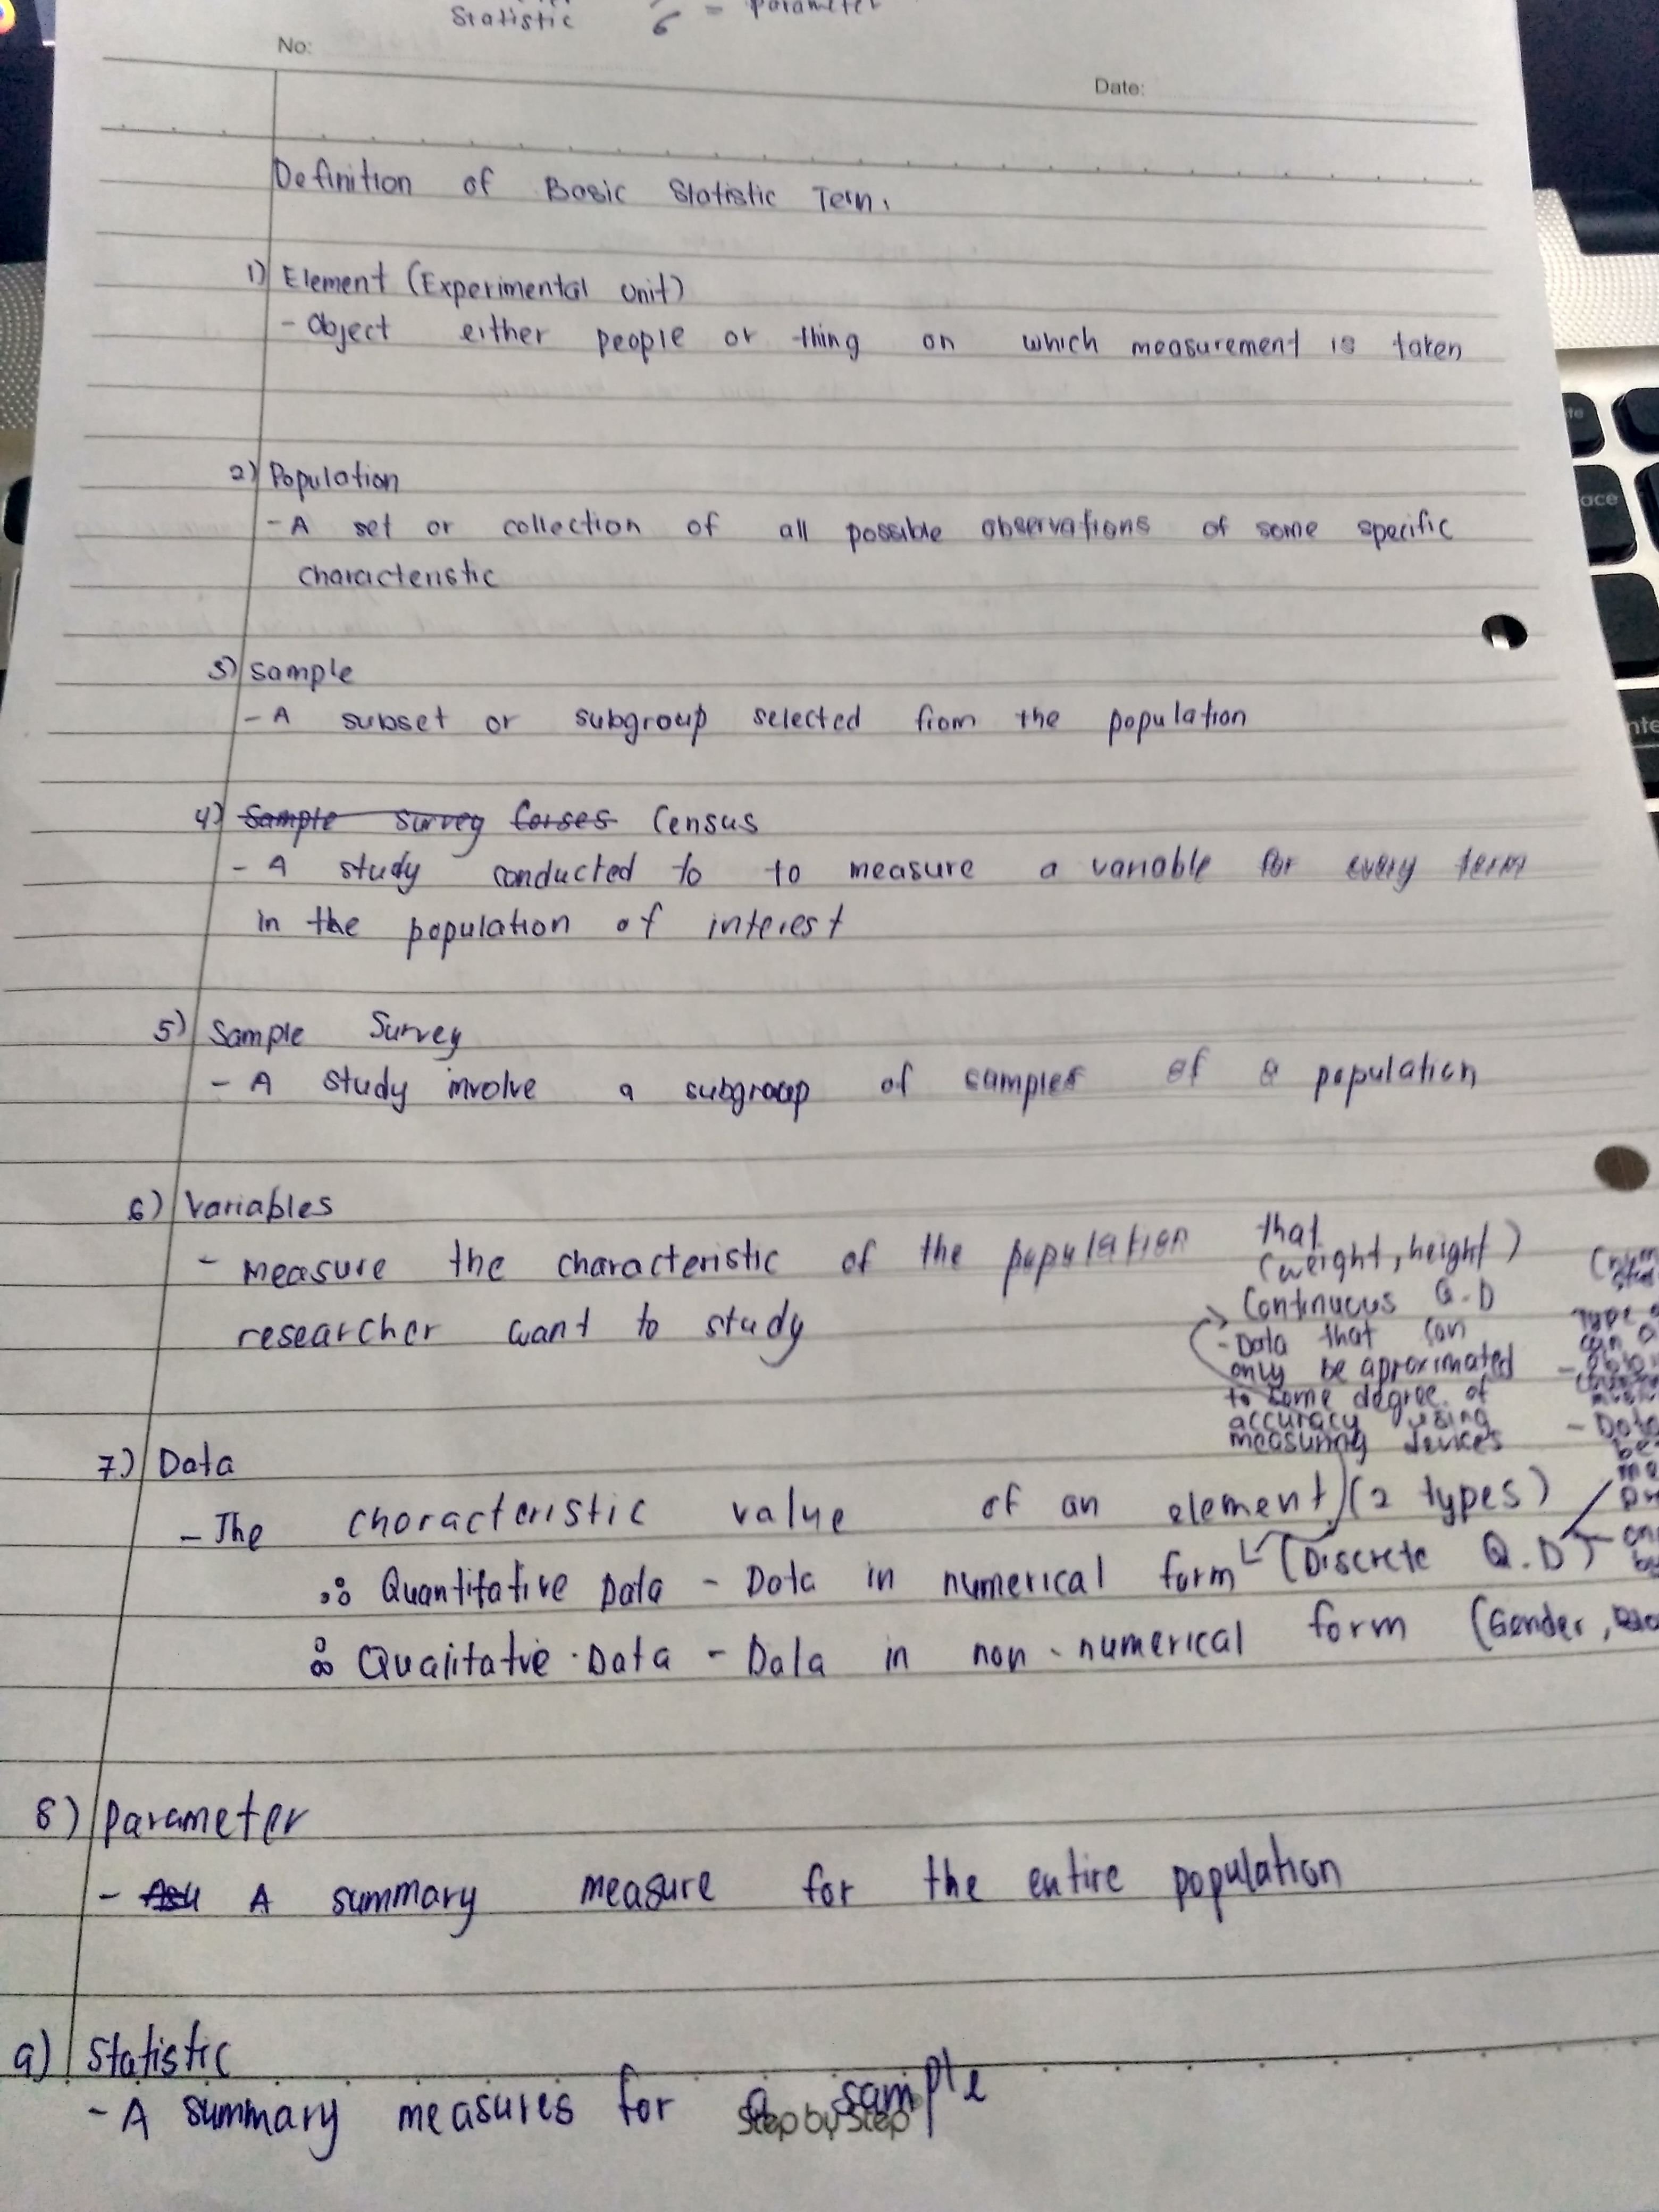 Statistic 6 = parameter
No:
Date:
Definition of Basic Statistic Term.
1) Element (Experimental Unit)
- Object either people or thing on which measurement is taken
2) Population
- A set or collection of all possible observations of some specific
characteristic
3) Sample
- A subset or subgroup selected from the population
4) Sample Survey Census
- A study conducted to to measure a variable for every term
in the population of interest
5) Sample Survey
- A study involve a subgroup of samples of a population
6) Variables
- measure the characteristic of the population that
researcher want to study
(weight, height)
Continuous Q.D
- Data that can
only be aproximated
to some degree of
accuracy using
measuring devices
Type
can
- Data
be
7) Data
- The characteristic value of an element (2 types)
Quantitative Data - Data in numerical form (Discrete Q.D)
Qualitatve Data - Data in non-numerical form (Gender,
8) Parameter
- A summary measure for the entire population
9) Statistic
- A summary measures for a sample
Step by Step